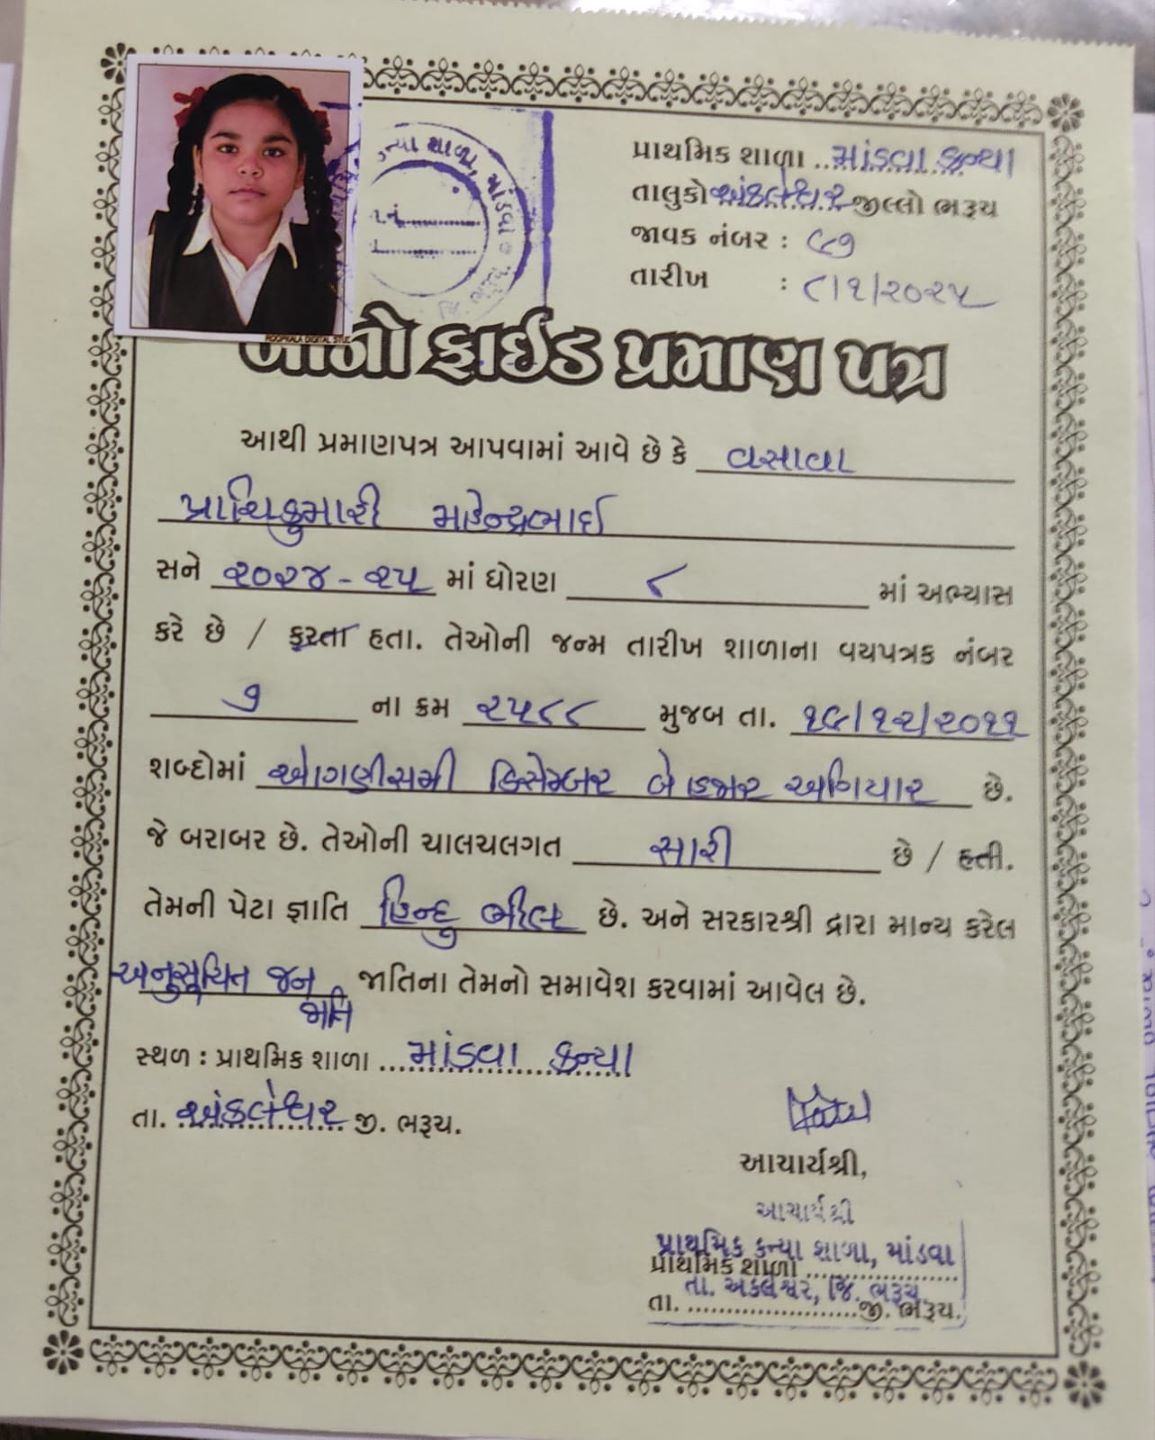 ન્યા શાળા, માંડવા
પ્રાથમિક શાળા ..માંડવા કન્યા
તાલુકો અંકલેશ્વર જીલ્લો ભરૂચ
જાવક નંબર : ૯૭
તારીખ : ૮/૧/૨૦૨૫
ROOPKALA DIGITAL STUD
બોનો ફાઈડ પ્રમાણ પત્ર
આથી પ્રમાણપત્ર આપવામાં આવે છે કે વસાવા
પ્રાચિકુમારી મહેન્દ્રભાઈ
સને ૨૦૨૪-૨૫ માં ધોરણ ૮ માં અભ્યાસ
કરે છે / કરતા હતા. તેઓની જન્મ તારીખ શાળાના વયપત્રક નંબર
૭ ના ક્રમ ૨૫૮૮ મુજબ તા. ૧૯/૧૨/૨૦૧૧
શબ્દોમાં ઓગણીસમી ડિસેમ્બર બે હજાર અગિયાર છે.
જે બરાબર છે. તેઓની ચાલચલગત સારી છે / હતી.
તેમની પેટા જ્ઞાતિ હિન્દુ ભીલ છે. અને સરકારશ્રી દ્વારા માન્ય કરેલ
અનુસૂચિત જન જાતિ જાતિના તેમનો સમાવેશ કરવામાં આવેલ છે.
સ્થળ : પ્રાથમિક શાળા ...માંડવા કન્યા
તા. અંકલેશ્વર જી. ભરૂચ.
આચાર્યશ્રી,
આચાર્યશ્રી
પ્રાથમિક કન્યા શાળા, માંડવા
પ્રાથમિક શાળા ....................
તા. અંકલેશ્વર, જિ. ભરૂચ.
તા. ......................જી. ભરૂચ.